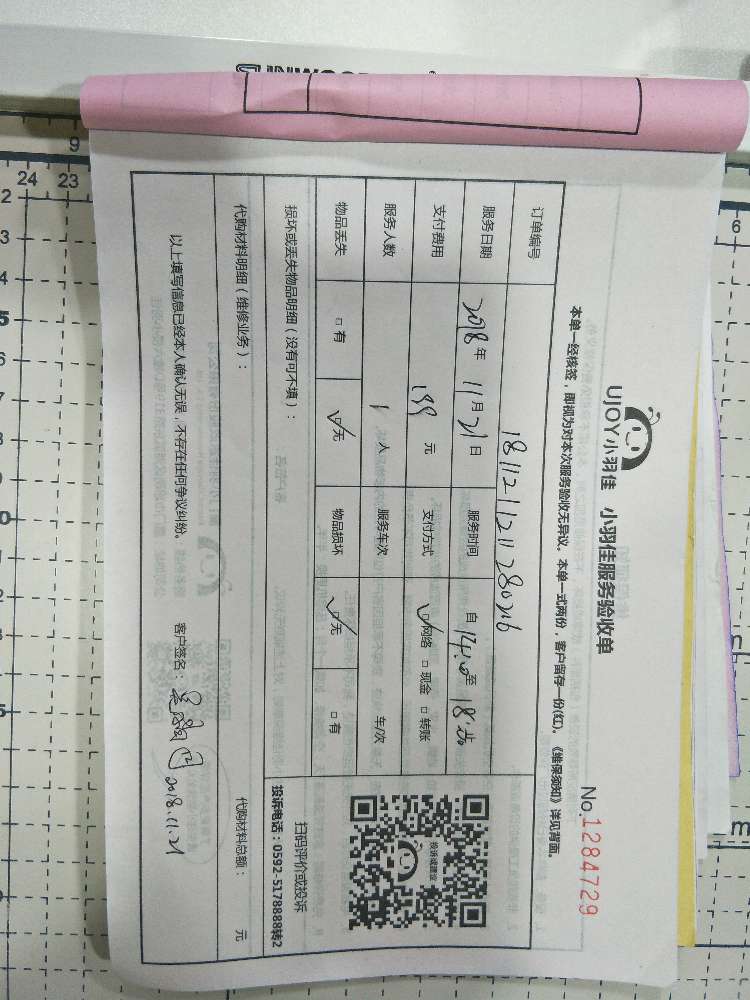 UJOY小羽佳 小羽佳服务验收单
No.1284729
本单一经核签，即视为对本次服务验收无异议。本单一式两份，客户留存一份(红)。《维保须知》详见背面。
订单编号 181121121128026
服务日期 2018年 11月21日 服务时间 自14:00至18:00
支付费用 199 元 支付方式 ☑网络 □现金 □转账
服务人数 1 人 服务车次 车/次
物品丢失 □有 ☑无 物品损坏 ☑无 □有
损坏或丢失物品明细（没有可不填）：
投诉或建议
扫码评价或投诉
投诉电话：0592-5178888转2
代购材料明细（维修业务）：
代购材料总额： 元
以上填写信息已经本人确认无误，不存在任何争议纠纷。 客户签名： 2018.11.21
24 23
9
6